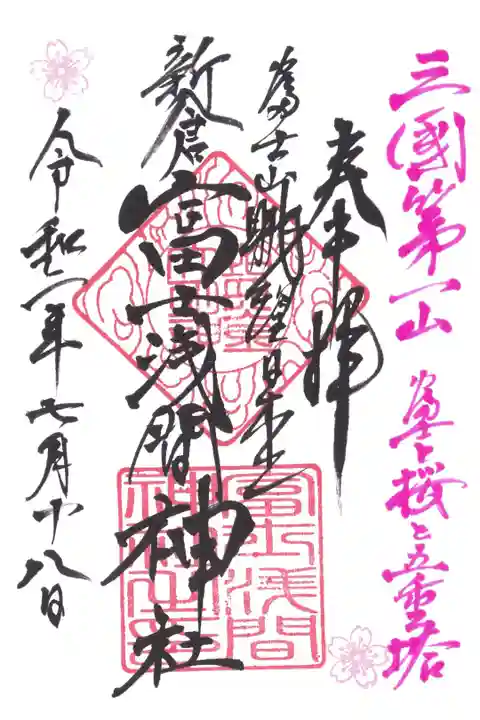 三國第一山 富士と桜と五重塔
奉拝
富士山眺望日本一
新倉富士浅間神社
令和二年七月十八日
富士浅間
神社印